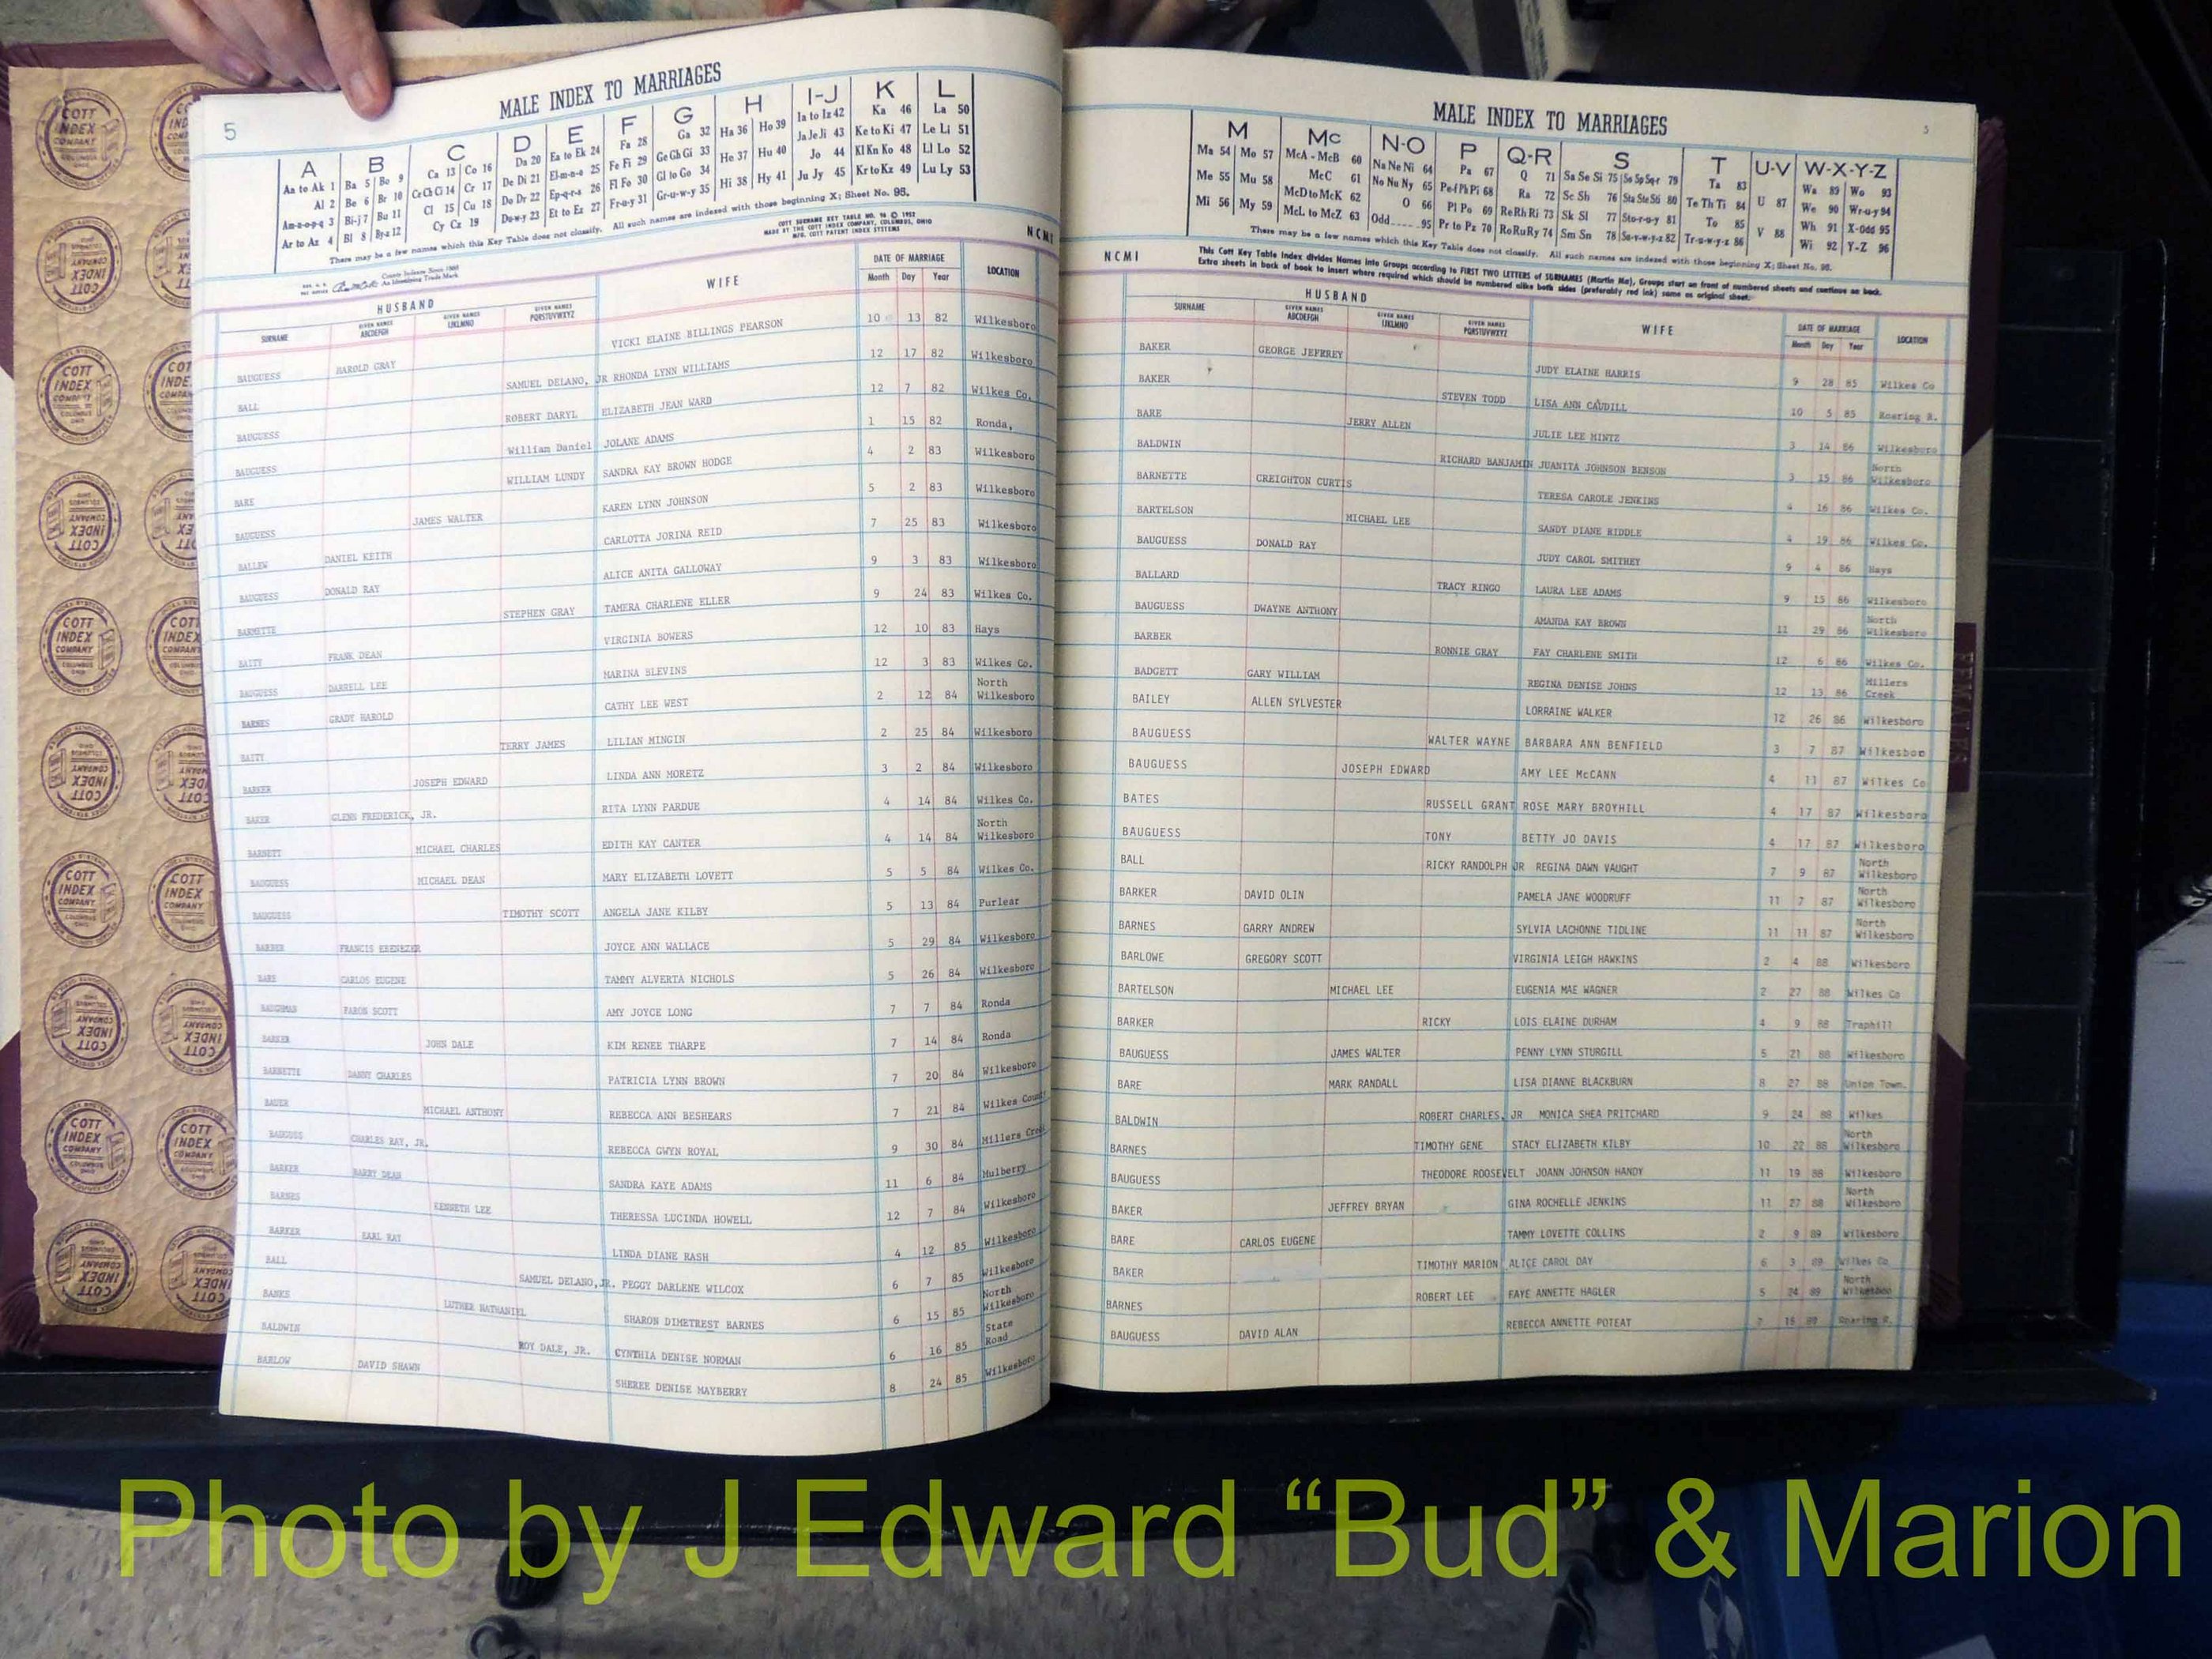 5
MALE INDEX TO MARRIAGES
A B C D E F G H I-J K L
Aa to Ak 1 Ba 5 Bo 9 Ca 13 Co 16 Da 20 Ea to Ek 24 Fa 28 Ga 32 Ha 36 Ho 39 Ia to Iz 42 Ka 46 La 50
Al 2 Be 6 Br 10 Ce Ch Ci 14 Cr 17 De Di 21 El-m-n-o 25 Fe Fi 29 Ge Gh Gi 33 He 37 Hu 40 Ja Je Ji 43 Ke to Ki 47 Le Li 51
Am-n-o-p-q 3 Bi-j 7 Bu 11 Cl 15 Cu 18 Do Dr 22 Ep-q-r-s 26 Fl Fo 30 Gl to Go 34 Hi 38 Hy 41 Jo 44 Kl Kn Ko 48 Ll Lo 52
Ar to Az 4 Bl 8 By-z 12 Cy Cz 19 Du-w-y 23 Et to Ez 27 Fr-u-y 31 Gr-u-w-y 35 Ju Jy 45 Kr to Kz 49 Lu Ly 53
There may be a few names which this Key Table does not classify. All such names are indexed with those beginning X; Sheet No. 95.
COTT SURNAME KEY TABLE NO. 96 © 1952
MADE BY THE COTT INDEX COMPANY, COLUMBUS, OHIO
MFG. COTT PATENT INDEX SYSTEMS
NCMI
HUSBAND WIFE DATE OF MARRIAGE LOCATION
SURNAME GIVEN NAMES ABCDEFGH GIVEN NAMES IJKLMNO GIVEN NAMES PQRSTUVWXYZ Month Day Year
BAUGUESS HAROLD GRAY VICKI ELAINE BILLINGS PEARSON 10 13 82 Wilkesboro
BALL SAMUEL DELANO, JR RHONDA LYNN WILLIAMS 12 17 82 Wilkesboro
BAUGUESS ROBERT DARYL ELIZABETH JEAN WARD 12 7 82 Wilkes Co.
BAUGUESS William Daniel JOLANE ADAMS 1 15 82 Ronda,
BARE WILLIAM LUNDY SANDRA KAY BROWN HODGE 4 2 83 Wilkesboro
BAUGUESS JAMES WALTER KAREN LYNN JOHNSON 5 2 83 Wilkesboro
BALLEW DANIEL KEITH CARLOTTA JORINA REID 7 25 83 Wilkesboro
BAUGUESS DONALD RAY ALICE ANITA GALLOWAY 9 3 83 Wilkesboro
BARNETTE STEPHEN GRAY TAMERA CHARLENE ELLER 9 24 83 Wilkes Co.
BAITY FRANK DEAN VIRGINIA BOWERS 12 10 83 Hays
BAUGUESS DARRELL LEE MARINA BLEVINS 12 3 83 Wilkes Co.
BARNES GRADY HAROLD CATHY LEE WEST 2 12 84 North Wilkesboro
BAITY TERRY JAMES LILIAN MINGIN 2 25 84 Wilkesboro
BARKER JOSEPH EDWARD LINDA ANN MORETZ 3 2 84 Wilkesboro
BAKER GLENN FREDERICK, JR. RITA LYNN PARDUE 4 14 84 Wilkes Co.
BARNETT MICHAEL CHARLES EDITH KAY CANTER 4 14 84 North Wilkesboro
BAUGUESS MICHAEL DEAN MARY ELIZABETH LOVETT 5 5 84 Wilkes Co.
BAUGUESS TIMOTHY SCOTT ANGELA JANE KILBY 5 13 84 Purlear
BARBER FRANCIS EBENEZER JOYCE ANN WALLACE 5 29 84 Wilkesboro
BARE CARLOS EUGENE TAMMY ALVERTA NICHOLS 5 26 84 Wilkesboro
BAUGHMAN FARON SCOTT AMY JOYCE LONG 7 7 84 Ronda
BARKER JOHN DALE KIM RENEE THARPE 7 14 84 Ronda
BARNETTE DANNY CHARLES PATRICIA LYNN BROWN 7 20 84 Wilkesboro
BAUER MICHAEL ANTHONY REBECCA ANN BESHEARS 7 21 84 Wilkes County
BAUGUSS CHARLES RAY, JR. REBECCA GWYN ROYAL 9 30 84 Millers Creek
BARKER BARRY DEAN SANDRA KAYE ADAMS 11 6 84 Mulberry
BARNES KENNETH LEE THERESSA LUCINDA HOWELL 12 7 84 Wilkesboro
BARKER EARL RAY LINDA DIANE RASH 4 12 85 Wilkesboro
BALL SAMUEL DELANO, JR. PEGGY DARLENE WILCOX 6 7 85 Wilkesboro
BANKS LUTHER NATHANIEL SHARON DIMETREST BARNES 6 15 85 North Wilkesboro
BALDWIN ROY DALE, JR. CYNTHIA DENISE NORMAN 6 16 85 State Road
BARLOW DAVID SHAWN SHEREE DENISE MAYBERRY 8 24 85 Wilkesboro
MALE INDEX TO MARRIAGES 5
M Mc N-O P Q-R S T U-V W-X-Y-Z
Ma 54 Mo 57 McA - McB 60 Na Ne Ni 64 Pa 67 Q 71 Sa Se Si 75 So Sp Sq-r 79 Ta 83 U 87 Wa 89 Wo 93
Me 55 Mu 58 McC 61 No Nu Ny 65 Pe-f Ph Pi 68 Ra 72 Sc Sh 76 Sta Ste Sti 80 Te Th Ti 84 V 88 We 90 Wr-u-y 94
Mi 56 My 59 McD to McK 62 O 66 Pl Po 69 Re Rh Ri 73 Sk Sl 77 Sto-r-u-y 81 To 85 Wh 91 X-Odd 95
McL to McZ 63 Odd 95 Pr to Pz 70 Ro Ru Ry 74 Sm Sn 78 Su-v-w-y-z 82 Tr-u-w-y-z 86 Wi 92 Y-Z 96
There may be a few names which this Key Table does not classify. All such names are indexed with those beginning X; Sheet No. 95.
This Cott Key Table Index divides Names into Groups according to FIRST TWO LETTERS of SURNAMES (Martin Ma), Groups start on front of numbered sheets and continue on back.
Extra sheets in back of book to insert where required which should be numbered alike both sides (preferably red ink) same as original sheet.
NCMI
HUSBAND WIFE DATE OF MARRIAGE LOCATION
SURNAME GIVEN NAMES ABCDEFGH GIVEN NAMES IJKLMNO GIVEN NAMES PQRSTUVWXYZ Month Day Year
BAKER GEORGE JEFFREY JUDY ELAINE HARRIS 9 28 85 Wilkes Co
BAKER STEVEN TODD LISA ANN CAUDILL 10 5 85 Roaring R.
BARE JERRY ALLEN JULIE LEE MINTZ 3 14 86 Wilkesboro
BALDWIN RICHARD BANJAMIN JUANITA JOHNSON BENSON 3 15 86 North Wilkesboro
BARNETTE CREIGHTON CURTIS TERESA CAROLE JENKINS 4 16 86 Wilkes Co.
BARTELSON MICHAEL LEE SANDY DIANE RIDDLE 4 19 86 Wilkes Co.
BAUGUESS DONALD RAY JUDY CAROL SMITHEY 9 4 86 Hays
BALLARD TRACY RINGO LAURA LEE ADAMS 9 15 86 Wilkesboro
BAUGUESS DWAYNE ANTHONY AMANDA KAY BROWN 11 29 86 North Wilkesboro
BARBER RONNIE GRAY FAY CHARLENE SMITH 12 6 86 Wilkes Co.
BADGETT GARY WILLIAM REGINA DENISE JOHNS 12 13 86 Millers Creek
BAILEY ALLEN SYLVESTER LORRAINE WALKER 12 26 86 Wilkesboro
BAUGUESS WALTER WAYNE BARBARA ANN BENFIELD 3 7 87 Wilkesboo
BAUGUESS JOSEPH EDWARD AMY LEE McCANN 4 11 87 Wilkes Co
BATES RUSSELL GRANT ROSE MARY BROYHILL 4 17 87 Wilkesboro
BAUGUESS TONY BETTY JO DAVIS 4 17 87 Wilkesboro
BALL RICKY RANDOLPH JR REGINA DAWN VAUGHT 7 9 87 North Wilkesboro
BARKER DAVID OLIN PAMELA JANE WOODRUFF 11 7 87 North Wilkesboro
BARNES GARRY ANDREW SYLVIA LACHONNE TIDLINE 11 11 87 North Wilkesboro
BARLOWE GREGORY SCOTT VIRGINIA LEIGH HAWKINS 2 4 88 Wilkesboro
BARTELSON MICHAEL LEE EUGENIA MAE WAGNER 2 27 88 Wilkes Co
BARKER RICKY LOIS ELAINE DURHAM 4 9 88 Traphill
BAUGUESS JAMES WALTER PENNY LYNN STURGILL 5 21 88 Wilkesboro
BARE MARK RANDALL LISA DIANNE BLACKBURN 8 27 88 Union Town.
BALDWIN ROBERT CHARLES, JR MONICA SHEA PRITCHARD 9 24 88 Wilkes
BARNES TIMOTHY GENE STACY ELIZABETH KILBY 10 22 88 North Wilkesboro
BAUGUESS THEODORE ROOSEVELT JOANN JOHNSON HANDY 11 19 88 Wilkesboro
BAKER JEFFREY BRYAN GINA ROCHELLE JENKINS 11 27 88 North Wilkesboro
BARE CARLOS EUGENE TAMMY LOVETTE COLLINS 2 9 89 Wilkesboro
BAKER TIMOTHY MARION ALICE CAROL DAY 6 3 89 Wilkes Co
BARNES ROBERT LEE FAYE ANNETTE HAGLER 5 24 89 North Wilkesboo
BAUGUESS DAVID ALAN REBECCA ANNETTE POTEAT 7 15 89 Roaring R.
COTT INDEX COMPANY
Photo by J Edward “Bud” & Marion